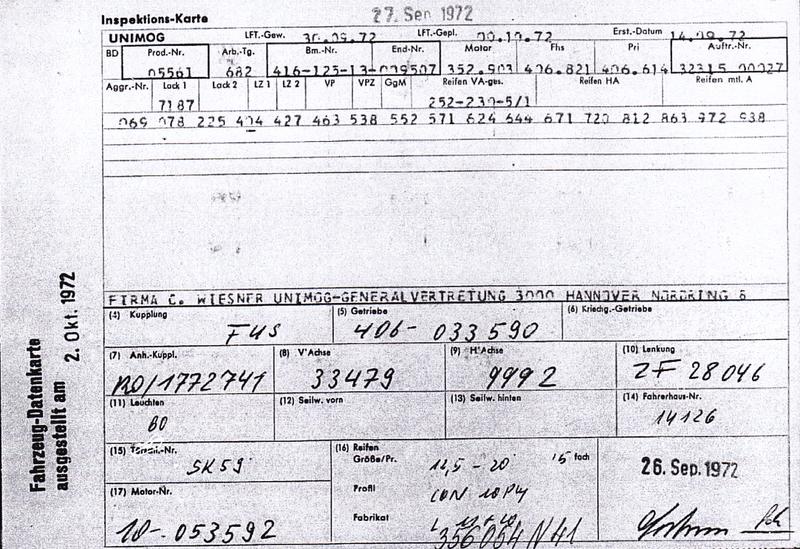 Inspektions-Karte
27. Sep. 1972
UNIMOG LFT.-Gew. 30.09.72 LFT.-Gepl. 00.10.72 Erst.-Datum 14.09.72
BD Prod.-Nr. Arb.-Tg. Bm.-Nr. End-Nr. Motor Fhs Pri Auftr.-Nr.
05561 682 416-125-13-009507 352.903 406.821 406.614 32315 00027
Aggr.-Nr. Lack 1 Lack 2 LZ 1 LZ 2 VP VPZ GgM Reifen VA-ges. Reifen HA Reifen mtl. A
7187 252-230-5/1
069 078 225 404 427 463 538 552 571 624 644 671 720 812 863 972 938
FIRMA C. WIESNER UNIMOG-GENERALVERTRETUNG 3000 HANNOVER NORDRING 8
(4) Kupplung (5) Getriebe (6) Kriechg.-Getriebe
F+S 406- 033590
(7) Anh.-Kuppl. (8) V'Achse (9) H'Achse (10) Lenkung
RO/1772741 33479 9992 ZF 28046
(11) Leuchten (12) Seilw. vorn (13) Seilw. hinten (14) Fahrerhaus-Nr.
BO 14126
(15) -Nr. (16) Reifen
Größe/Pr. 12,5 - 20 fach
SK59
26. Sep. 1972
(17) Motor-Nr. Profil CON 10PR
Fabrikat
10-053592 356054 N41
Fahrzeug-Datenkarte
ausgestellt am 2. Okt. 1972